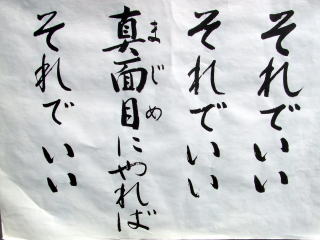 それでいい
それでいい
真面目にやれば
まじめ
それでいい